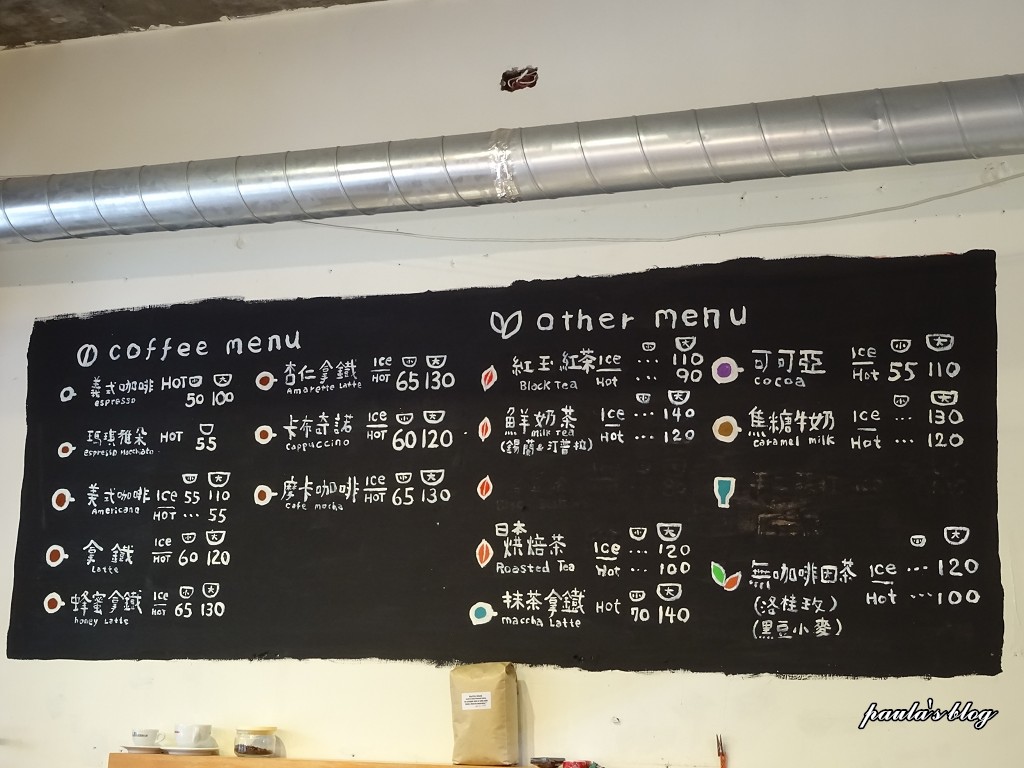 coffee menu
義式咖啡 HOT 小 大
espresso 50 100
瑪瑪雅朵 HOT 55
espresso Macchato
義式咖啡 Ice 55 110
Americano HOT ... 55
拿鐵 Ice 小 大
Latte HOT 60 120
蜂蜜拿鐵 Ice 小 大
honey Latte HOT 65 130
杏仁拿鐵 Ice 小 大
Amarette Latte HOT 65 130
卡布奇諾 Ice 小 大
Cappuccino HOT 60 120
摩卡咖啡 Ice 小 大
cafe mocha HOT 65 130
other menu
小 大
紅玉紅茶 Ice ... 110
Black Tea Hot ... 90
小 大
鮮奶茶 Ice ... 140
milk Tea Hot ... 120
(錫蘭&汀普拉)
日本 小 大
烘焙茶 Ice ... 120
Roasted Tea Hot ... 100
抹茶拿鐵 Hot 小 大
maccha Latte 70 140
可可亞 Ice 小 大
cocoa Hot 55 110
小 大
焦糖牛奶 Ice ... 130
caramel milk Hot ... 120
小 大
無咖啡因茶 Ice ... 120
(洛桂玫) Hot ... 100
(黑豆小麥)
paula's blog